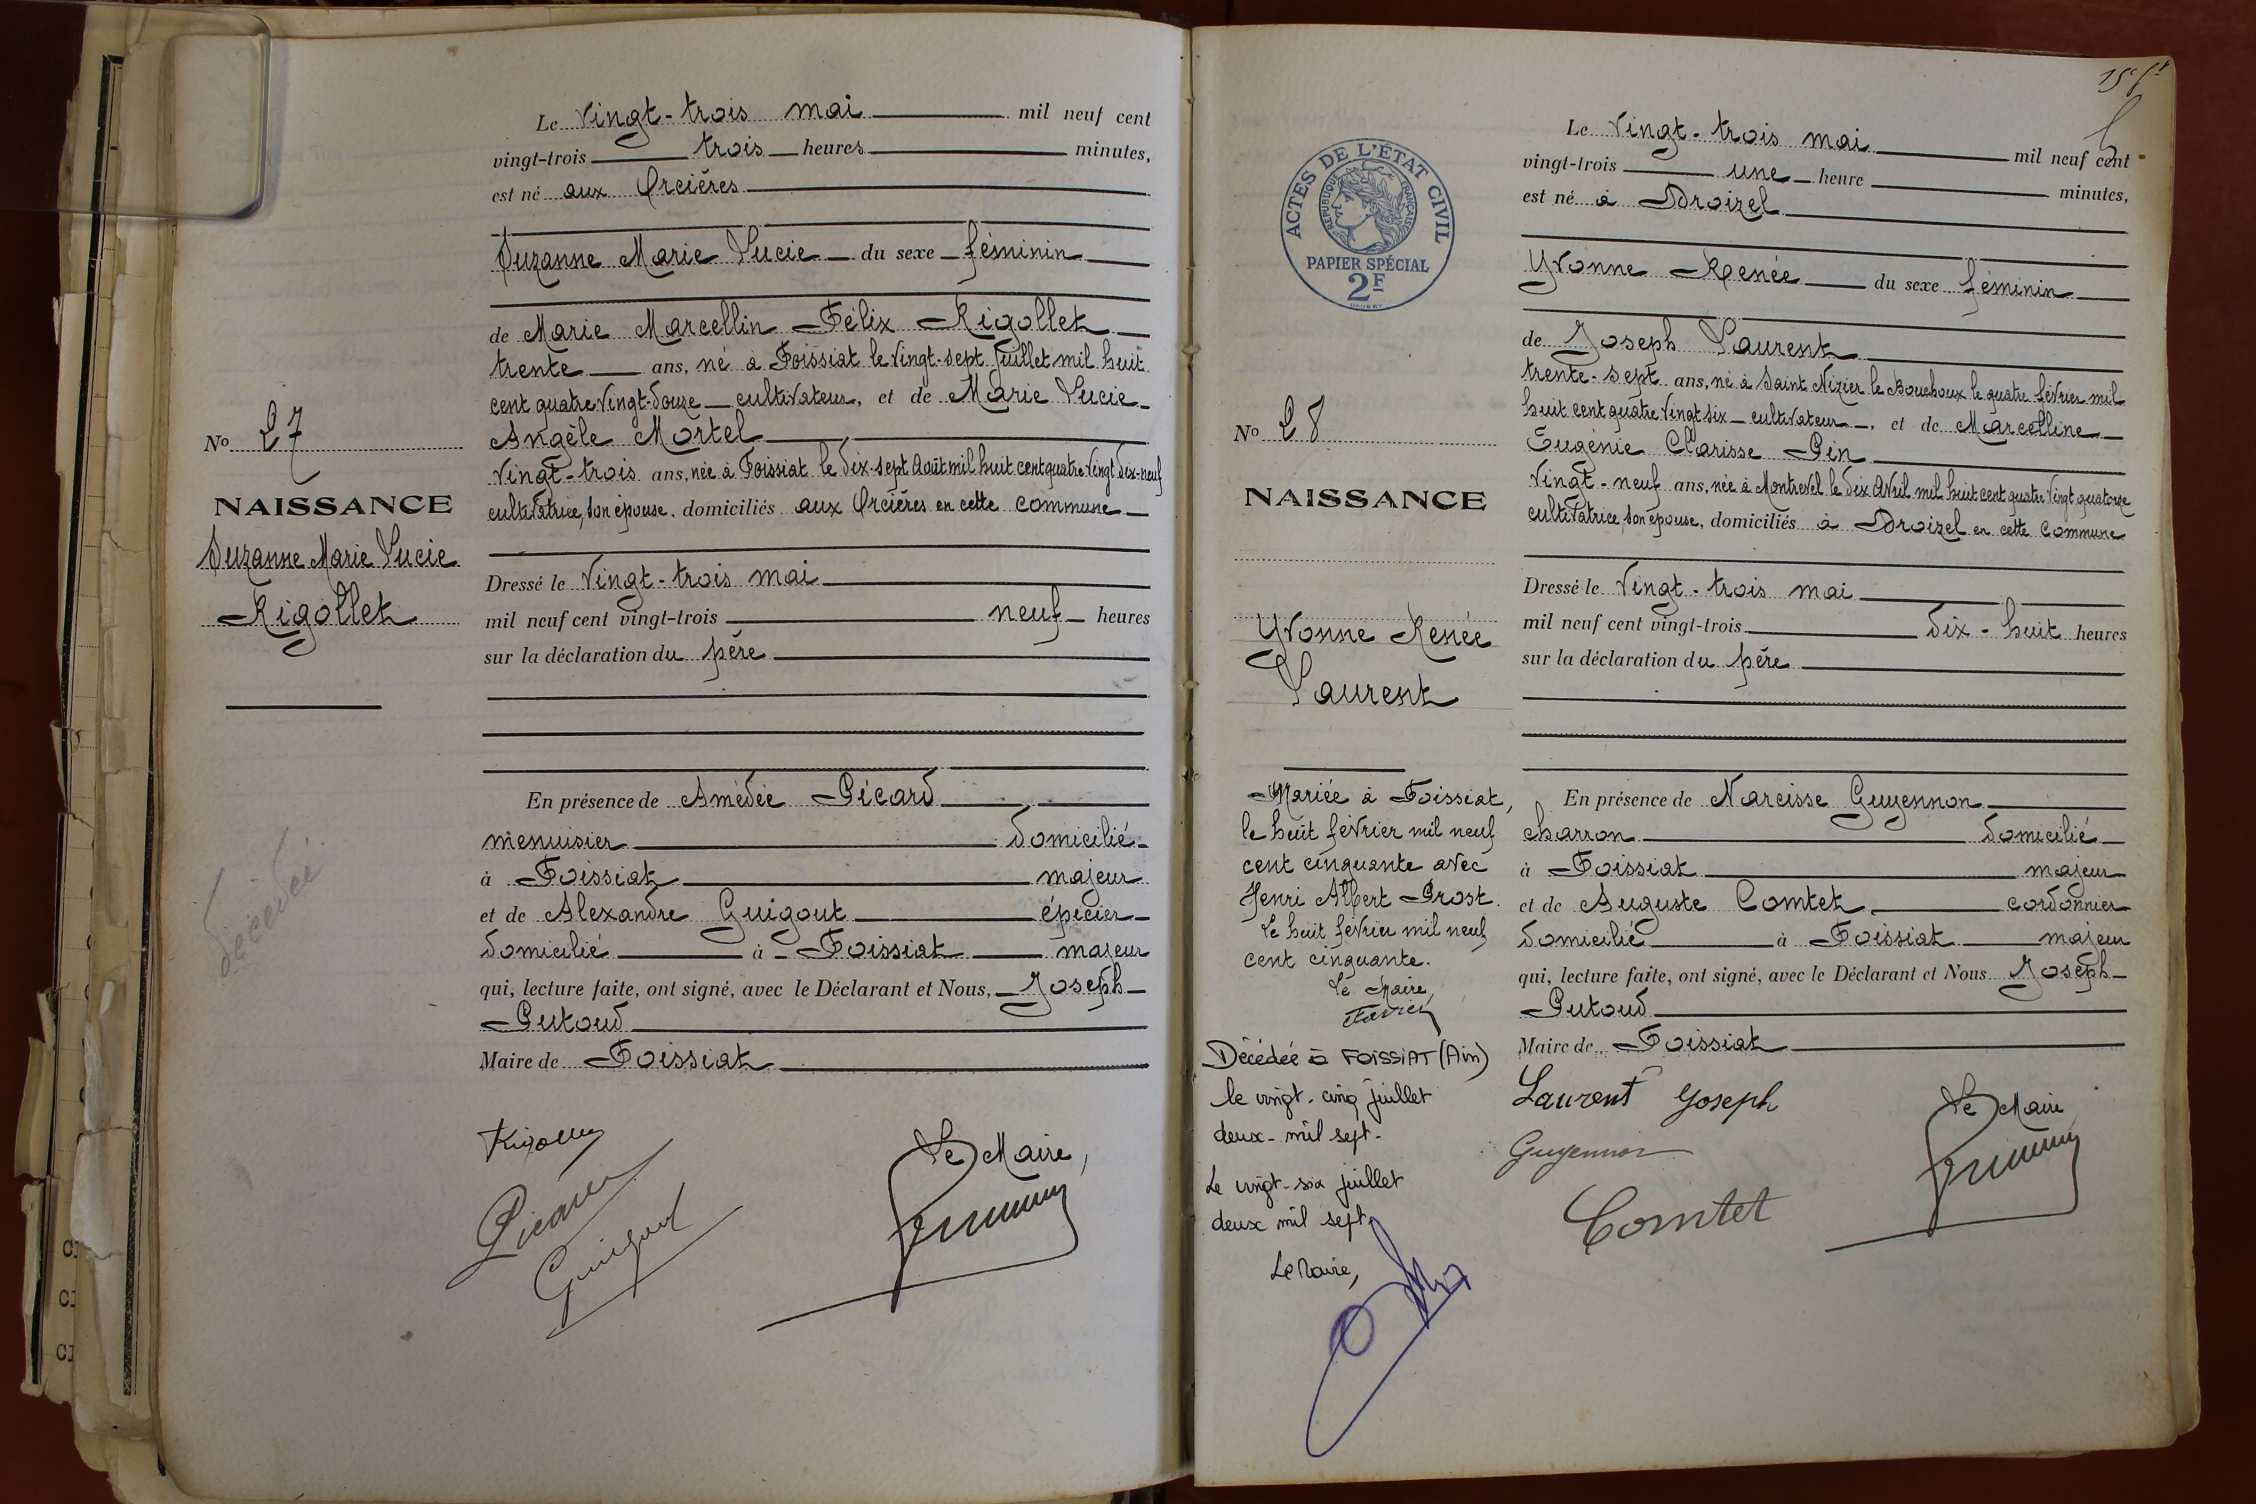 Le vingt-trois mai mil neuf cent
vingt-trois trois heures minutes,
est né aux Orcières
Suzanne Marie Lucie du sexe féminin
de Marie Marcellin Félix Rigollet
trente ans, né à Foissiat le vingt-sept juillet mil huit
cent quatre vingt-douze cultivateur, et de Marie Lucie
Angèle Mortel
vingt-trois ans, née à Foissiat le dix-sept août mil huit cent quatre vingt dix-neuf
cultivatrice, son épouse, domiciliés aux Orcières en cette commune
Dressé le vingt-trois mai
mil neuf cent vingt-trois neuf heures
sur la déclaration du père
En présence de Amédée Picard
menuisier domicilié
à Foissiat majeur
et de Alexandre Guigout épicier
domicilié à Foissiat majeur
qui, lecture faite, ont signé, avec le Déclarant et Nous, Joseph
Putoud
Maire de Foissiat
Le Maire,
Picard
Guigout
No 27
NAISSANCE
Suzanne Marie Lucie
Rigollet
décédée
ACTES DE L'ÉTAT CIVIL
RÉPUBLIQUE FRANÇAISE
PAPIER SPÉCIAL
2F
Le vingt-trois mai mil neuf cent
vingt-trois une heure minutes,
est né à Droizel
Yvonne Renée du sexe féminin
de Joseph Laurent
trente-sept ans, né à Saint Nizier le Bouchoux le quatre février mil
huit cent quatre vingt six cultivateur, et de Marcelline
Eugénie Clarisse Pin
vingt-neuf ans, née à Montrevel le dix avril mil huit cent quatre vingt quatorze
cultivatrice, son épouse, domiciliés à Droizel en cette commune
Dressé le vingt-trois mai
mil neuf cent vingt-trois dix-huit heures
sur la déclaration du père
En présence de Narcisse Guyennon
charron domicilié
à Foissiat majeur
et de Auguste Comtet cordonnier
domicilié à Foissiat majeur
qui, lecture faite, ont signé, avec le Déclarant et Nous Joseph
Putoud
Maire de Foissiat
Laurent Joseph
Le Maire
Guyennon
Comtet
No 28
NAISSANCE
Yvonne Renée
Laurent
Mariée à Foissiat,
le huit février mil neuf
cent cinquante avec
Henri Albert Prost.
Le huit février mil neuf
cent cinquante.
Le Maire,
Décédée à FOISSIAT (Ain)
le vingt-cinq juillet
deux-mil sept.
Le vingt-six juillet
deux mil sept
Le Maire,